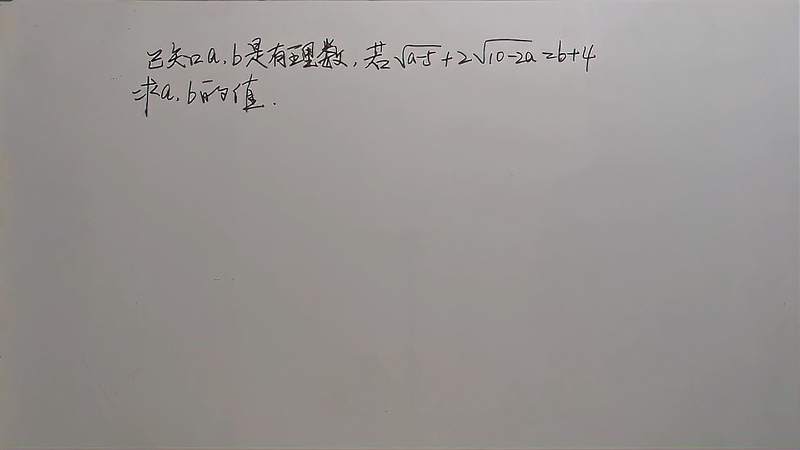 已知a,b是有理数,若√(a-5)+2√(10-2a)=b+4
求a,b的值.